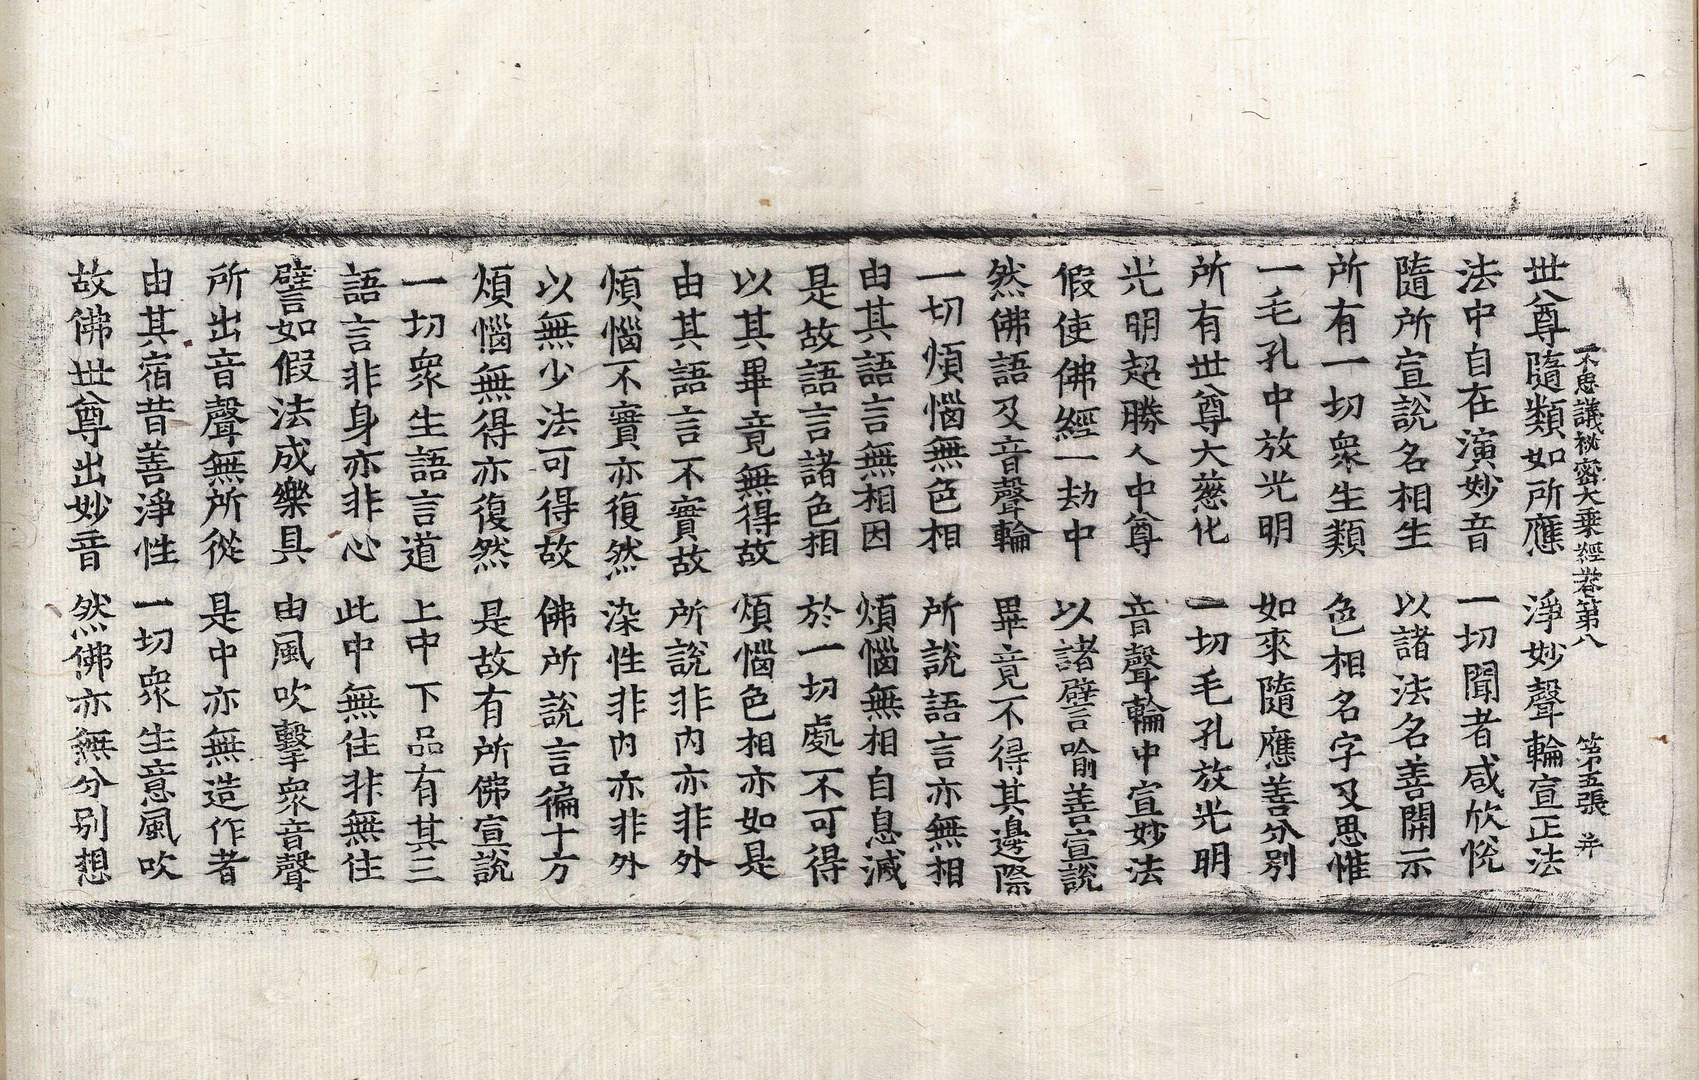 不思議秘密大乘經卷第八 第五張 㒵
世尊隨類如所應 淨妙聲輪宣正法
法中自在演妙音 一切聞者咸欣悅
隨所宣說名相生 以諸法名善開示
所有一切衆生類 色相名字及思惟
一毛孔中放光明 如來隨應善分別
所有世尊大慈化 一切毛孔放光明
光明超勝人中尊 音聲輪中宣妙法
假使佛經一劫中 以諸譬喻善宣說
然佛語及音聲輪 畢竟不得其邊際
一切煩惱無色相 所說語言亦無相
由其語言無相因 煩惱無相自息滅
是故語言諸色相 於一切處不可得
以其畢竟無得故 煩惱色相亦如是
由其語言不實故 所說非內亦非外
煩惱不實亦復然 染性非內亦非外
以無少法可得故 佛所說言徧十方
煩惱無得亦復然 是故有所佛宣說
一切衆生語言道 上中下品有其三
語言非身亦非心 此中無住非無住
譬如假法成樂具 由風吹擊衆音聲
所出音聲無所從 是中亦無造作者
由其宿昔善淨性 一切衆生意風吹
故佛世尊出妙音 然佛亦無分別想